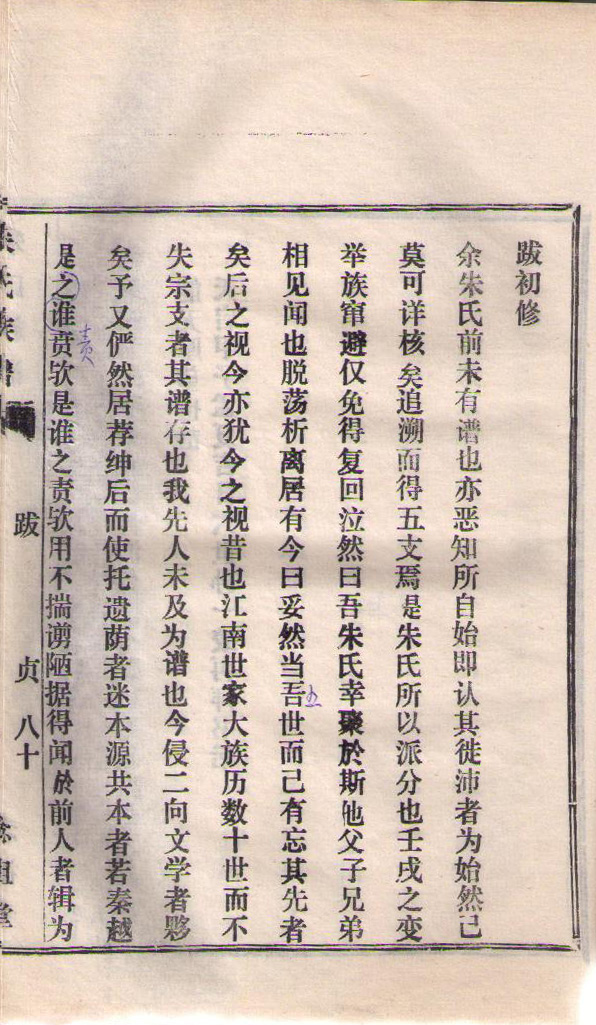 跋初修
余朱氏前未有谱也亦恶知所自始即认其徙沛者为始然已
莫可详核矣追溯而得五支焉是朱氏所以派分也壬戌之变
举族窜避仅免得复回泣然曰吾朱氏幸聚於斯他父子兄弟
相见闻也脱荡析离居有今日妥然当吾世而己有忘其先者
五
矣后之视今亦犹今之视昔也江南世家大族历数十世而不
失宗支者其谱存也我先人未及为谱也今侵二向文学者夥
矣予又俨然居荐绅后而使托遗荫者迷本源共本者若秦越
是之谁贲欤是谁之责欤用不揣谫陋据得闻於前人者辑为
责
朱氏族谱
跋
贞 八十